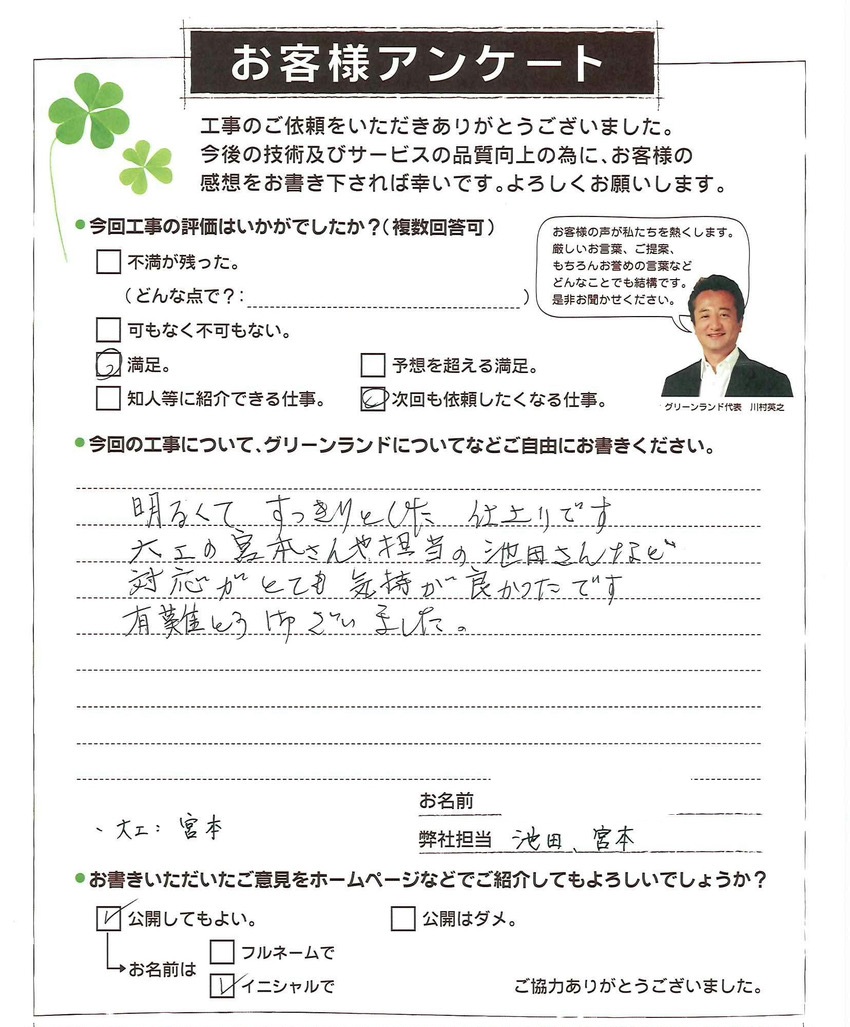 お客様アンケート
工事のご依頼をいただきありがとうございました。
今後の技術及びサービスの品質向上の為に、お客様の
感想をお書き下されば幸いです。よろしくお願いします。
●今回工事の評価はいかがでしたか？（複数回答可）
不満が残った。
（どんな点で？：　）
可もなく不可もない。
満足。
予想を超える満足。
知人等に紹介できる仕事。
次回も依頼したくなる仕事。
お客様の声が私たちを熱くします。
厳しいお言葉、ご提案、
もちろんお誉めの言葉など
どんなことでも結構です。
是非お聞かせください。
グリーンランド代表　川村英之
●今回の工事について、グリーンランドについてなどご自由にお書きください。
明るくて すっきりとした 仕上りです
大工の宮本さんや担当の池田さんなど
対応がとても気持が良かったです
有難とうございました。
お名前
、大工：宮本
弊社担当 池田、宮本
●お書きいただいたご意見をホームページなどでご紹介してもよろしいでしょうか？
公開してもよい。
公開はダメ。
お名前は
フルネームで
イニシャルで
ご協力ありがとうございました。